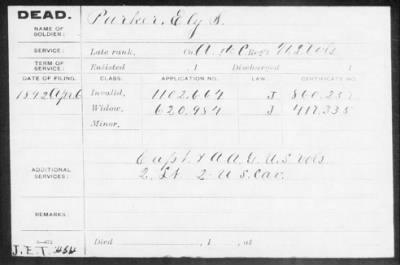 DEAD.
NAME OF SOLDIER:
Parker, Ely S.
SERVICE:
Late rank, Co. Reg't U.S. Vols
TERM OF SERVICE:
Enlisted , 1 Discharged , 1
DATE OF FILING. CLASS. APPLICATION NO. LAW. CERTIFICATE NO.
1892 Apr 6 Invalid, 1102.664 J 860.257
Widow, 620.984 J 417.335
Minor,
ADDITIONAL SERVICES:
Capt & A A G U.S. Vols
2 Lt 2 U S Cav.
REMARKS:
Died , 1 , at
J.E.T.